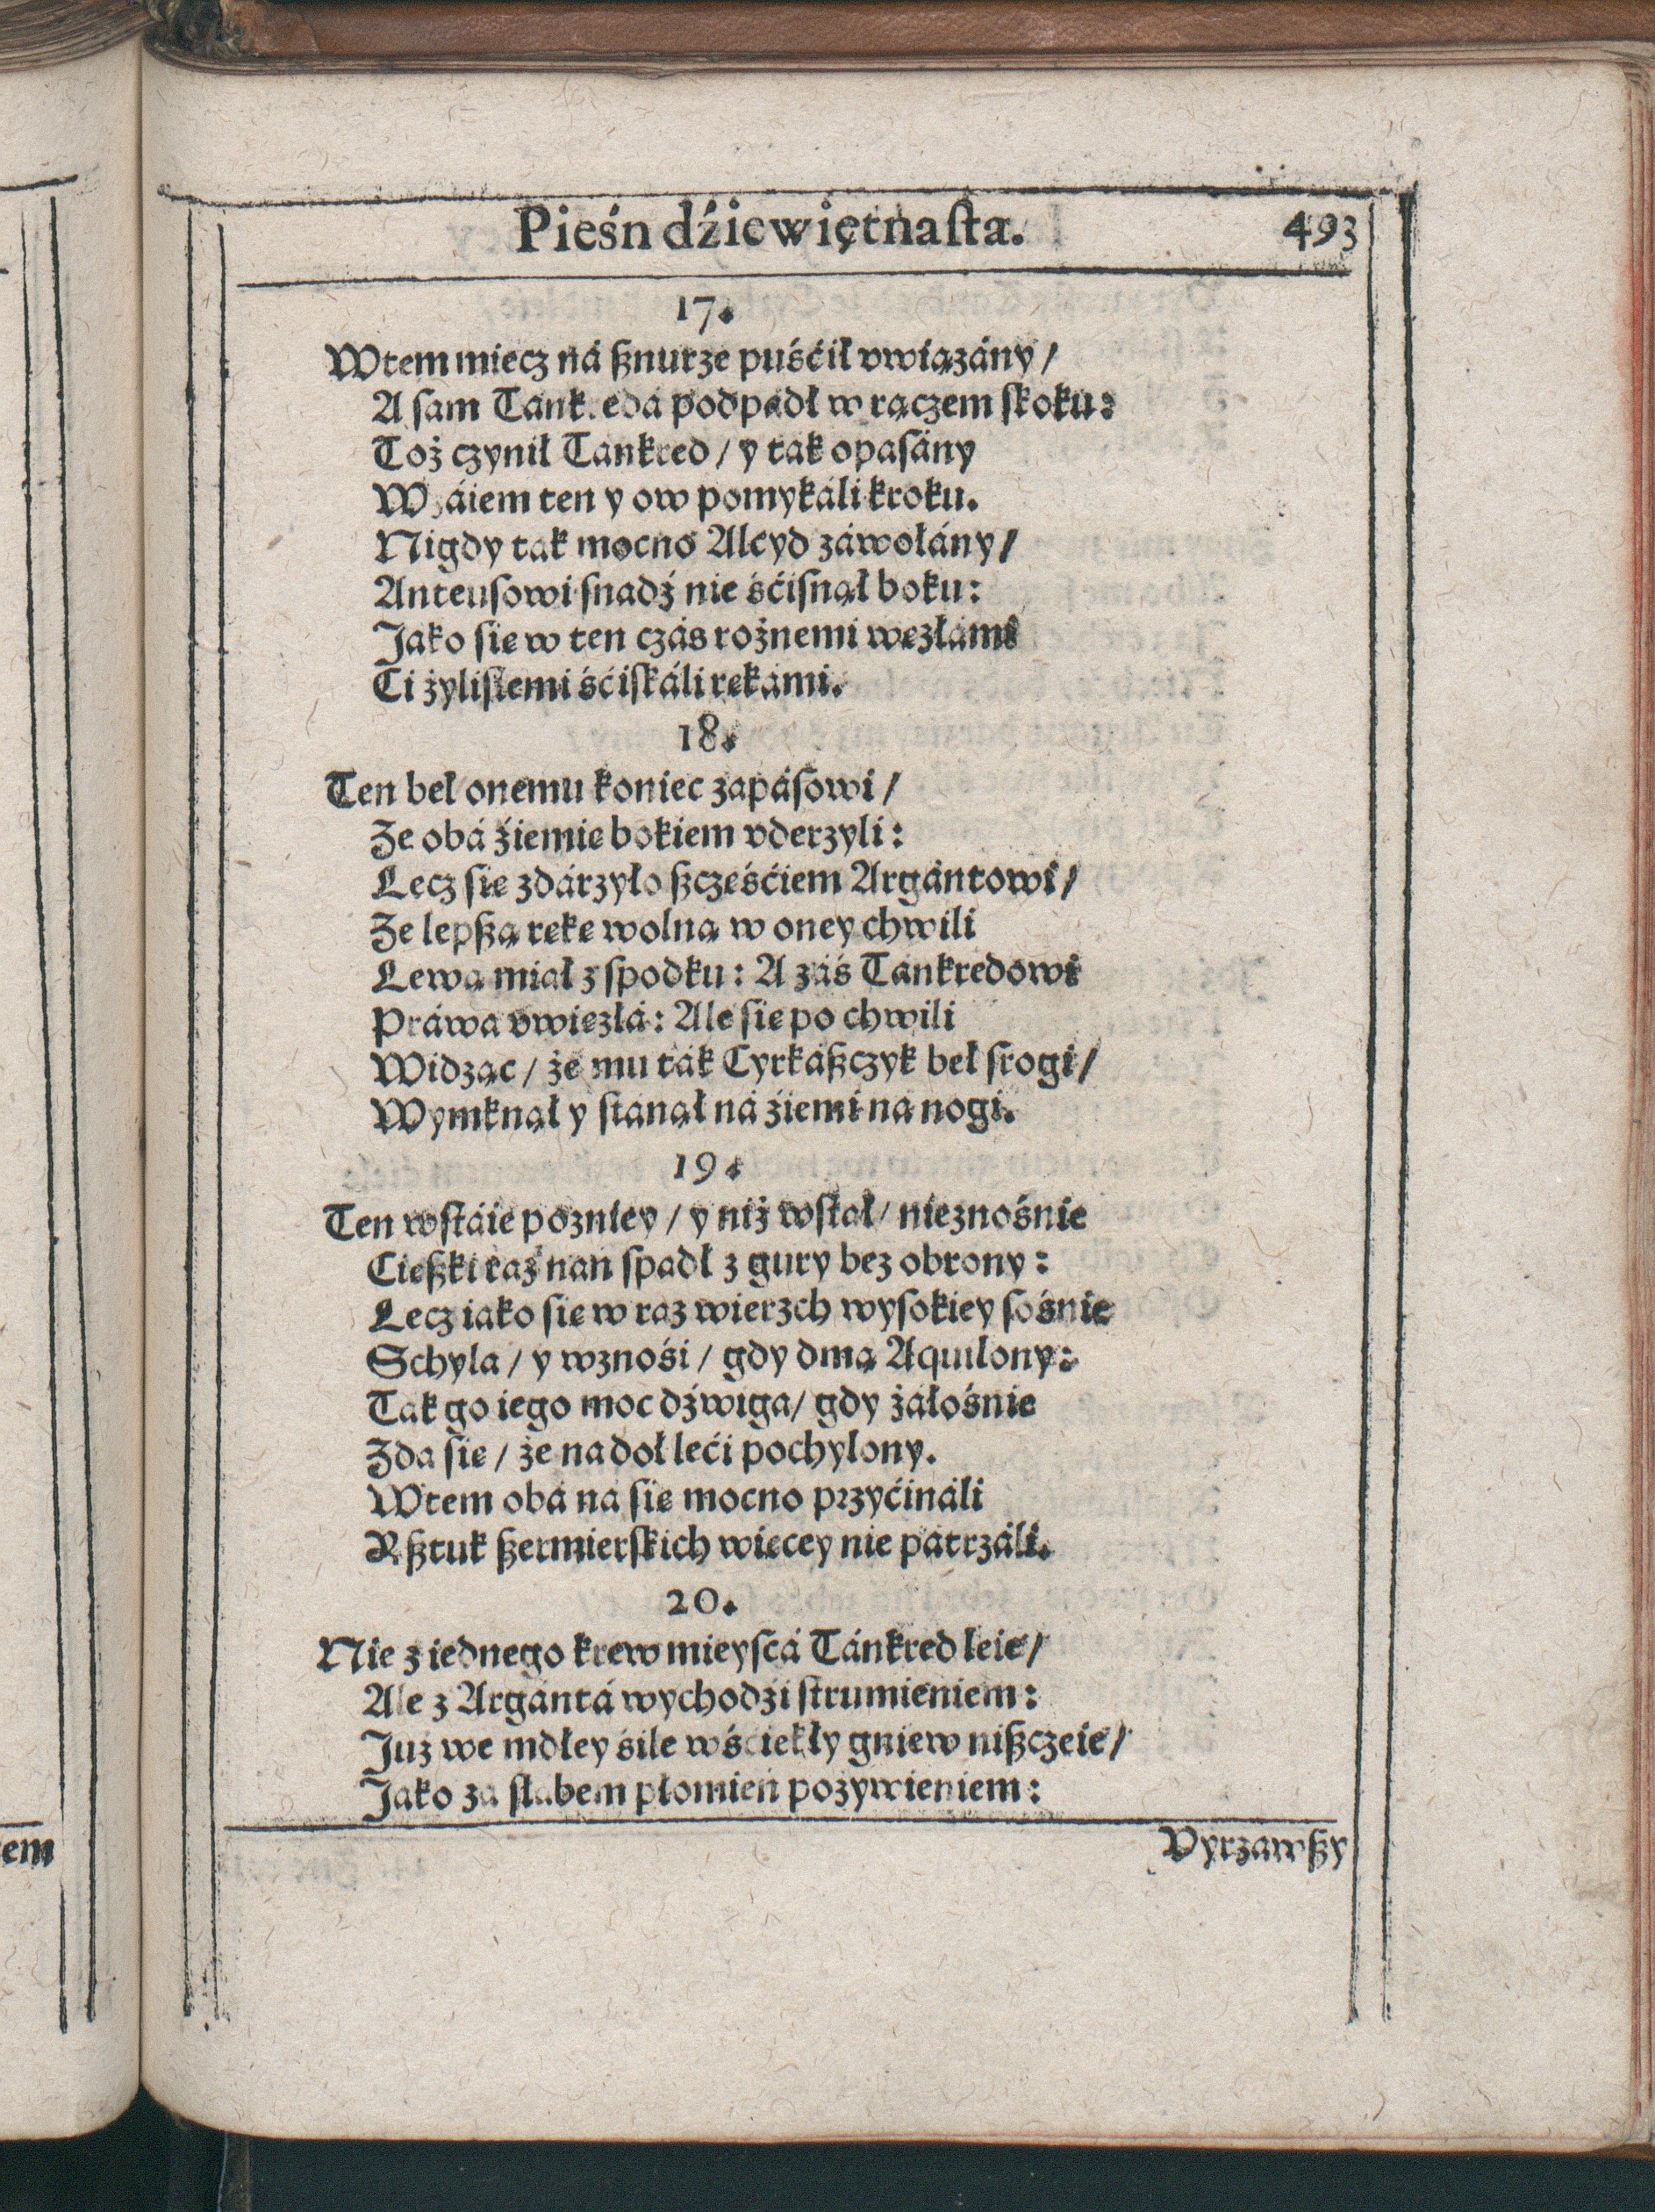 Pieśń dźiewiętnaſta. 493
17.
Wtem miecz ná ßnurze puśćił vwiązány/
A ſam Tankredá podpadł w rączem ſkoku:
Toż czynił Tankred/ y tak opaſány
Wzáiem ten y ow pomykáli kroku.
Nigdy tak mocno Alcyd záwołány/
Anteuſowi ſnadź nie śćiſnął boku:
Jako ſie w ten czás rożnemi węzłámi
Ci żyliſtemi śćiſkáli rękámi.
18.
Ten beł onemu koniec zapáſowi/
Ze obá źiemię bokiem vderzyli:
Lecz ſię zdárzyło ßczęśćiem Argántowi/
Ze lepßą rękę wolną w oney chwili
Lewą miał z ſpodku: A záś Tankredowi
Práwa vwięzłá: Ale ſię po chwili
Widząc/ że mu ták Cyrkáßczyk beł ſrogi/
Wymknął y ſtanął ná źiemi na nogi.
19.
Ten wſtáie pozniey/ y niż wſtał/ nieznośnie
Cięßki raz nań ſpadł z gury bez obrony:
Lecz iako ſię w raz wierzch wyſokiey ſośnie
Schyla/ y wznośi/ gdy dmą Aquilony:
Tak go iego moc dźwiga/ gdy żáłośnie
Zda ſię/ że na doł leći pochylony.
Wtem obá na ſię mocno przyćináli
A ßtuk ßermierſkich więcey nie pátrzáli.
20.
Nie z iednego krew mieyſcá Tánkred leie/
Ale z Argántá wychodźi ſtrumieniem:
Już we mdłey śile wśćiekły gniew nißczeie/
Jako za ſłabem płomień pożywieniem:
Vyrzawßy
em